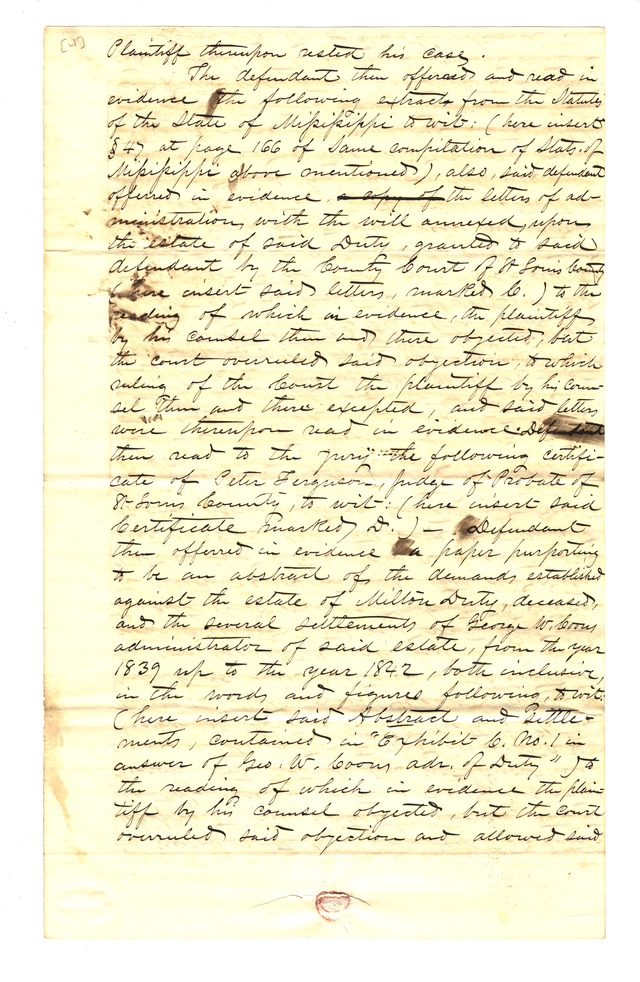 [4]
Plaintiff thereupon rested his case.
The defendant then offered and read in
evidence the following extracts from the Statutes
of the State of Mississippi to wit: (here insert
§47 at page 166 of same compilation of Stats. of
Mississippi above mentioned), also, said defendant
offerred in evidence a copy of the letters of ad-
ministration, with the will annexed, upon
the estate of said Duty, granted to said
defendant by the County Court of St Louis County
(here insert said letters, marked C.) to the
reading of which in evidence, the plaintiff
by his counsel then and there objected, but
the court overruled said objection, to which
ruling of the Court the plaintiff by his coun-
sel then and there excepted, and said letters
were thereupon read in evidence Defendant
then read to the jury the following certifi-
cate of Peter Ferguson, judge of Probate of
St Louis County, to wit: (here insert said
Certificate marked D.) — Defendant
then offerred in evidence a paper purporting
to be an abstract of the demands established
against the estate of Milton Duty, deceased,
and the several settlements of George W. Coons
administrator of said estate, from the year
1839 up to the year 1842, both inclusive,
in the words and figures following, to wit:
(here insert said Abstract and Settle-
ments, contained in "Exhibit C. No. 1 in
answer of Geo. W. Coons adr. of Duty") to
the reading of which in evidence the plain-
tiff by his counsel objected, but the court
overruled said objection and allowed said